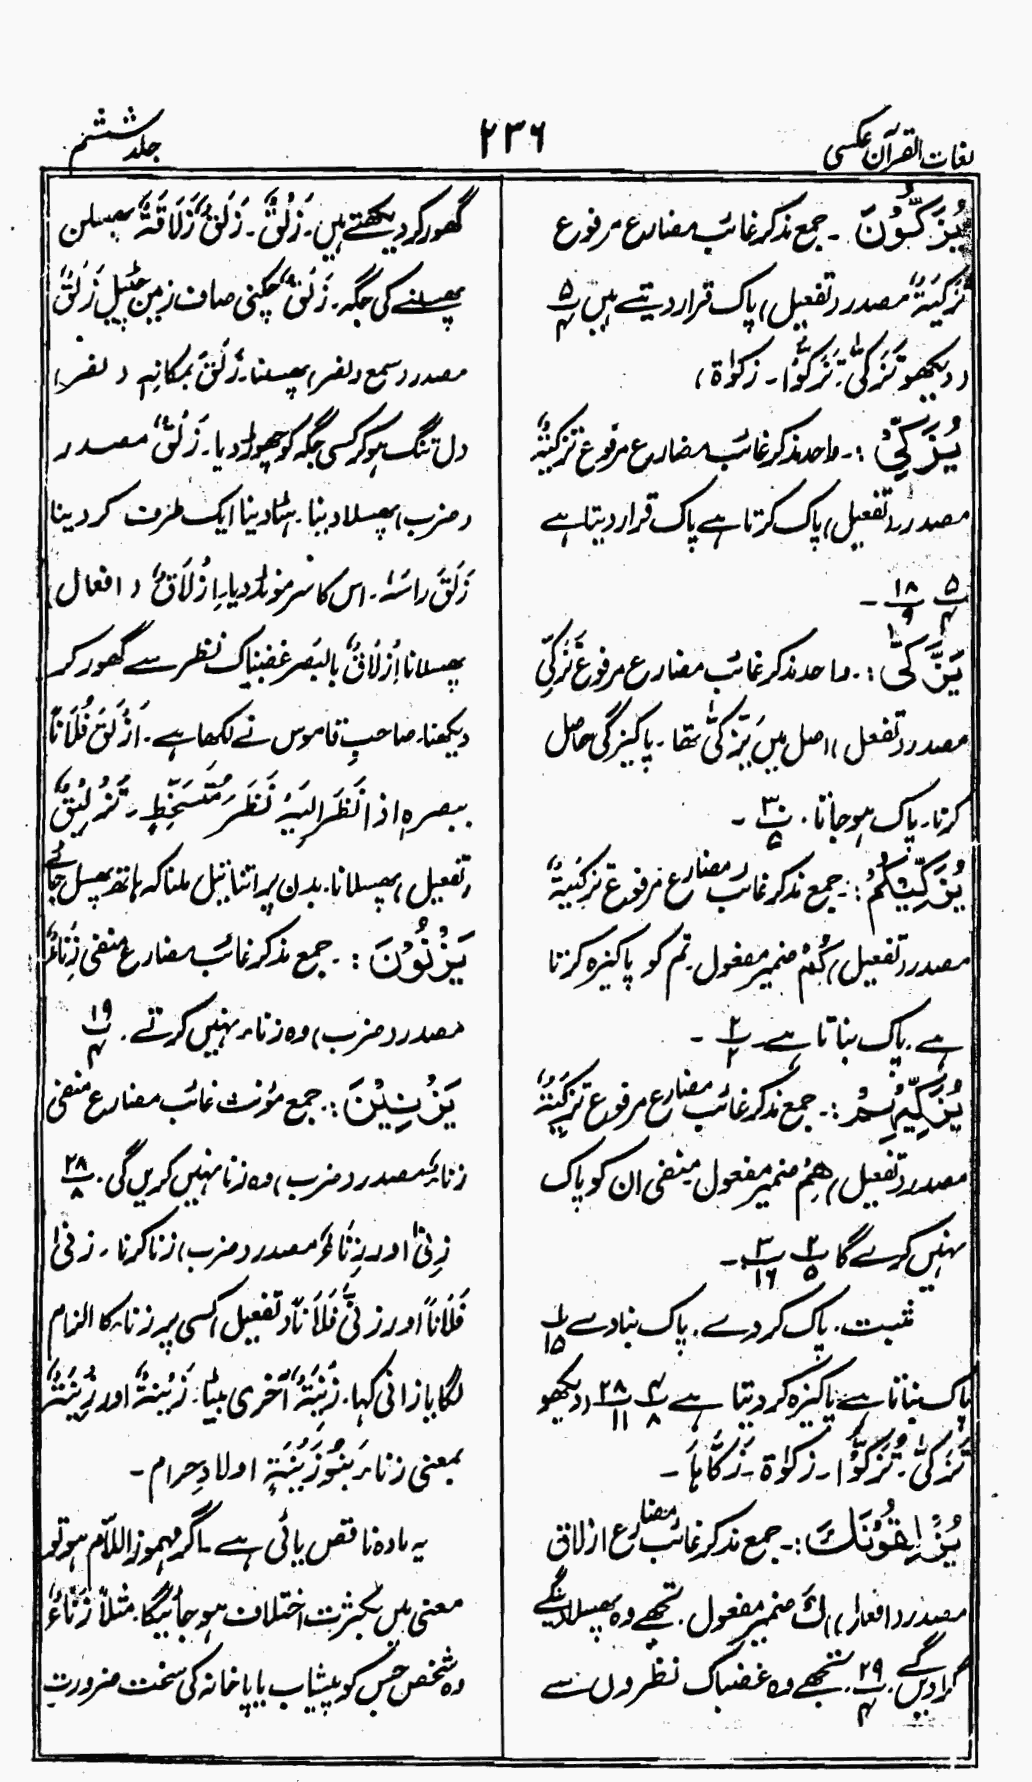 لغات القرآن عکسی
۲۳۶
جلد ششم
يُزَكُّوْنَ ۔ جمع مذکر غائب مضارع مرفوع
تَزْكِيَةٌ مصدر (تفعیل) پاک قرار دیتے ہیں ۵/۴
(دیکھو تَزَكّٰى ۔ تَزَكَّوْا ۔ زکوٰۃ)
يُزَكِّيْ :۔ واحد مذکر غائب مضارع مرفوع تَزْكِيَةٌ
مصدر (تفعیل) پاک کرتا ہے پاک قرار دیتا ہے
۵/۴ ۱۸/۹ ۔
يَزَّكّٰى :۔ واحد مذکر غائب مضارع مرفوع تَزَكِّيْ
مصدر (تفعل) اصل میں يَتَزَكّٰى تھا ۔ پاکیزگی حاصل
کرنا ۔ پاک ہو جانا ۔ ۳۰/۵ ۔
يُزَكِّيْكُمْ :۔ جمع مذکر غائب مضارع مرفوع تَزْكِيَةٌ
مصدر (تفعیل) كُمْ ضمیر مفعول ۔ تم کو پاکیزہ کرتا
ہے ۔ پاک بناتا ہے ۲/۲ ۔
يُزَكِّيْهِمْ :۔ جمع مذکر غائب مضارع مرفوع تَزْكِيَةٌ
مصدر (تفعیل) هِمْ ضمیر مفعول منفی ان کو پاک
نہیں کرے گا ۲/۵ ۳/۱۶ ۔
مثبت ۔ پاک کر دے ۔ پاک بنا دے ۱/۱۵
پاک بناتا ہے پاکیزہ کر دیتا ہے ۴/۸ ۲۸/۱۱ (دیکھو
تَزَكّٰى ۔ تَزَكَّوْا ۔ زکوٰۃ ۔ زَكّٰاهَا ۔
يُزْلِقُوْنَكَ :۔ جمع مذکر غائب مضارع ازلاق
مصدر (افعال) كَ ضمیر مفعول ۔ تجھے وہ پھسلا دینگے
گرا دیں گے ۔ ۲۹/۴ ۔ تجھے وہ غضبناک نظروں سے
گھور کر دیکھتے ہیں ۔ زَلْقٌ ۔ زَلَقٌ زَلَاقَةٌ پھسلن
پھسلنے کی جگہ ۔ زَلَقٌ چکنی صاف زمین چٹیل زَلَقٌ
مصدر (سمع و نصر) پھسلنا ۔ زَلَقَ بمکانہٖ (نصر)
دل تنگ ہو کر کسی جگہ کو چھوڑ دیا ۔ زَلْقٌ مصدر
(ضرب) پھسلا دینا ۔ ہٹا دینا ایک طرف کر دینا
زَلَقَ رَاسَهٗ ۔ اس کا سر مونڈ دیا ۔ اِزْلَاقٌ (افعال)
پھسلانا اِزْلَاقٌ بالبَصَر غضبناک نظر سے گھور کر
دیکھنا ۔ صاحبِ قاموس نے لکھا ہے ۔ اَزْلَقَ فُلَانًا
ببصرہٖ اذا نَظَرَ اِلَیْہِ نَظَرَ مُتَسَخِّطٍ ۔ تَزْلِيْقٌ
(تفعیل) پھسلانا ۔ بدن پر اتنا تیل ملنا کہ ہاتھ پھسل جائے
يَزْنُوْنَ :۔ جمع مذکر غائب مضارع منفی زِنَاءٌ
مصدر (ضرب) وہ زناء نہیں کرتے ۔ ۱۹/۴
يَزْنِيْنَ :۔ جمع مؤنث غائب مضارع منفی
زناءٌ مصدر (ضرب) وہ زنا نہیں کریں گی ۔ ۲۸/۸
زِنًى اور زِنَاءٌ مصدر (ضرب) زنا کرنا ۔ زنیٰ
فُلَانًا اور زنّٰی فُلَانًا (تفعیل) کسی پر زنا کا الزام
لگایا زانی کہا ۔ زِنْيَةٌ آخری بیٹا ۔ زَنْيَةٌ اور زِنْيَةٌ
بمعنی زناء بَنُوْ زَنْيَةٍ اولادِ حرام ۔
یہ مادہ ناقص یائی ہے ۔ اگر مہموز اللام ہو تو
معنی میں بکثرت اختلاف ہو جائیگا ۔ مثلاً زَنَاءٌ
وہ شخص جس کو پیشاب یا پاخانہ کی سخت ضرورت